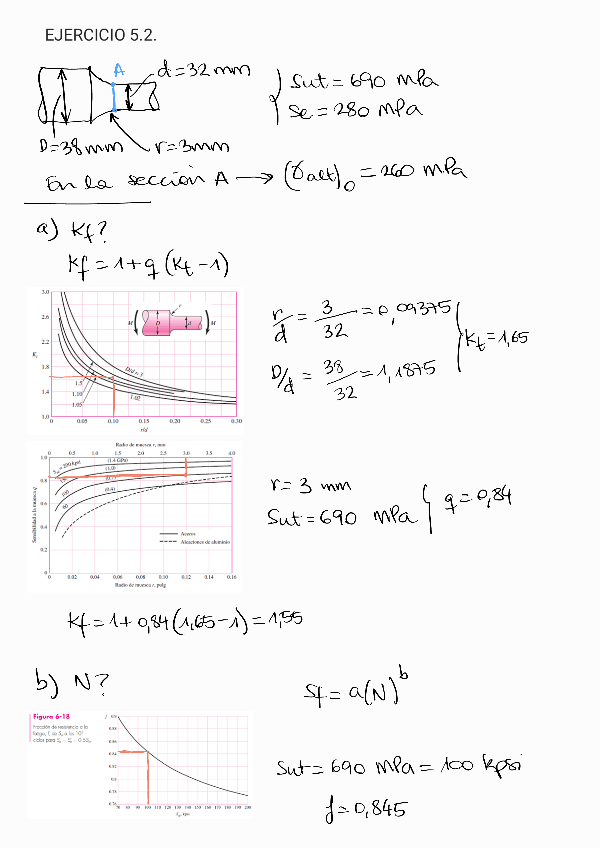 EJERCICIO 5.2.
A d=32mm
D=38mm r=3mm
Sut=690 MPa
Se=280 MPa
En la sección A → (σalt)₀ = 260 MPa
a) Kf?
Kf = 1+q (Kt -1)
3.0
2.6
2.2
1.8
1.4
1.0
Kt
M D r d M
D/d = 3
1.5
1.10
1.05
1.02
0 0.05 0.10 0.15 0.20 0.25 0.30
r/d
r/d = 3/32 = 0,09375
D/d = 38/32 = 1,1875
Kt = 1,65
Radio de muesca r, mm
0 0.5 1.0 1.5 2.0 2.5 3.0 3.5 4.0
1.0
0.8
0.6
0.4
0.2
0
Sensibilidad a la muesca q
Sut = 200 kpsi
(1.4 GPa)
(1.0)
(0.7)
(0.4)
100
60
Aceros
Aleaciones de aluminio
0 0.02 0.04 0.06 0.08 0.10 0.12 0.14 0.16
Radio de muesca r, pulg
r= 3 mm
Sut=690 MPa
q=0,84
Kf = 1+0,84(1,65-1)=1,55
b) N?
Sf = a(N)^b
Figura 6-18
Fracción de resistencia a la
fatiga, f, de Sut a los 10³
ciclos para Se = S'e = 0.5Sut.
f 0.9
0.88
0.86
0.84
0.82
0.8
0.78
0.76
70 80 90 100 110 120 130 140 150 160 170 180 190 200
Sut, kpsi
Sut= 690 MPa = 100 kpsi
f=0,845